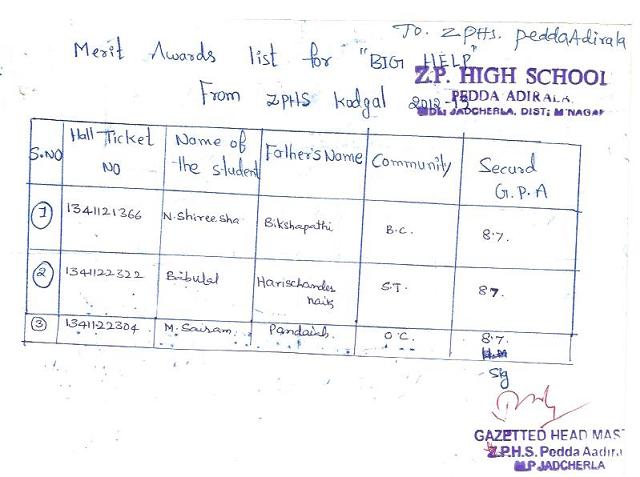 To. ZPHS. peddaAdirala
Merit Awards list for "BIG HELP"
Z.P. HIGH SCHOOL
PEDDA ADIRALA.
From ZPHS Kodgal 2012-13
MDL: JADCHERLA, DIST: M'NAGAR
S.NO Hall Ticket NO Name of the student Father's Name Community Secured G.P.A
1 1341121366 N. Shireesha Bikshapathi B.C. 8.7.
2 1341122322 Babulal Harischander naik S.T. 8.7
3 1341122304 M. Sairam. Pandaiah. O.C. 8.7.
Sig
GAZETTED HEAD MAS
Z.P.H.S. Pedda Aadira
M.P JADCHERLA